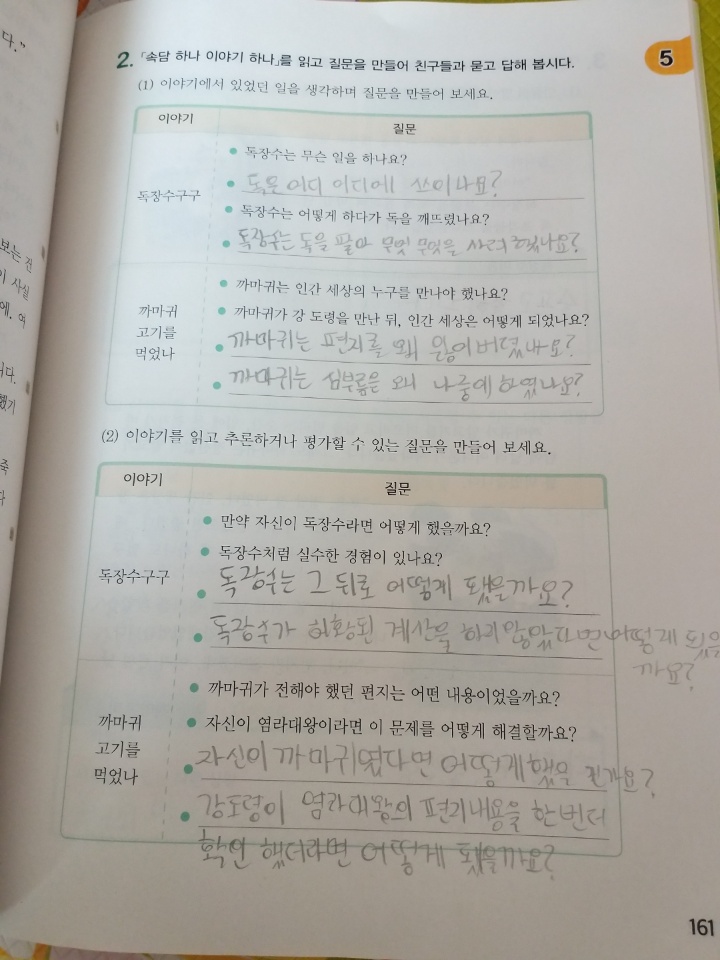 다."
보는 건
이 사실
에. 여
니다.
했기
죽
다
5
2. 「속담 하나 이야기 하나」를 읽고 질문을 만들어 친구들과 묻고 답해 봅시다.
(1) 이야기에서 있었던 일을 생각하며 질문을 만들어 보세요.
이야기 질문
독장수구구
독장수는 무슨 일을 하나요?
독은 어디 어디에 쓰이나요?
독장수는 어떻게 하다가 독을 깨뜨렸나요?
독장수는 독을 팔아 무엇 무엇을 사려 했나요?
까마귀
고기를
먹었나
까마귀는 인간 세상의 누구를 만나야 했나요?
까마귀가 강 도령을 만난 뒤, 인간 세상은 어떻게 되었나요?
까마귀는 편지를 왜
까마귀는 심부름은 왜 나중에 하였나요?
(2) 이야기를 읽고 추론하거나 평가할 수 있는 질문을 만들어 보세요.
이야기 질문
독장수구구
만약 자신이 독장수라면 어떻게 했을까요?
독장수처럼 실수한 경험이 있나요?
독장수는 그 뒤로 어떻게 됐을까요?
독장수가 허황된 계산을 하지 않았다면 어떻게 되었을
까요?
까마귀
고기를
먹었나
까마귀가 전해야 했던 편지는 어떤 내용이었을까요?
자신이 염라대왕이라면 이 문제를 어떻게 해결할까요?
자신이 까마귀였다면 어떻게 했을
강도령이 염라대왕의 편지내용을 한번더
확인 했더라면 어떻게 됐을까요?
161